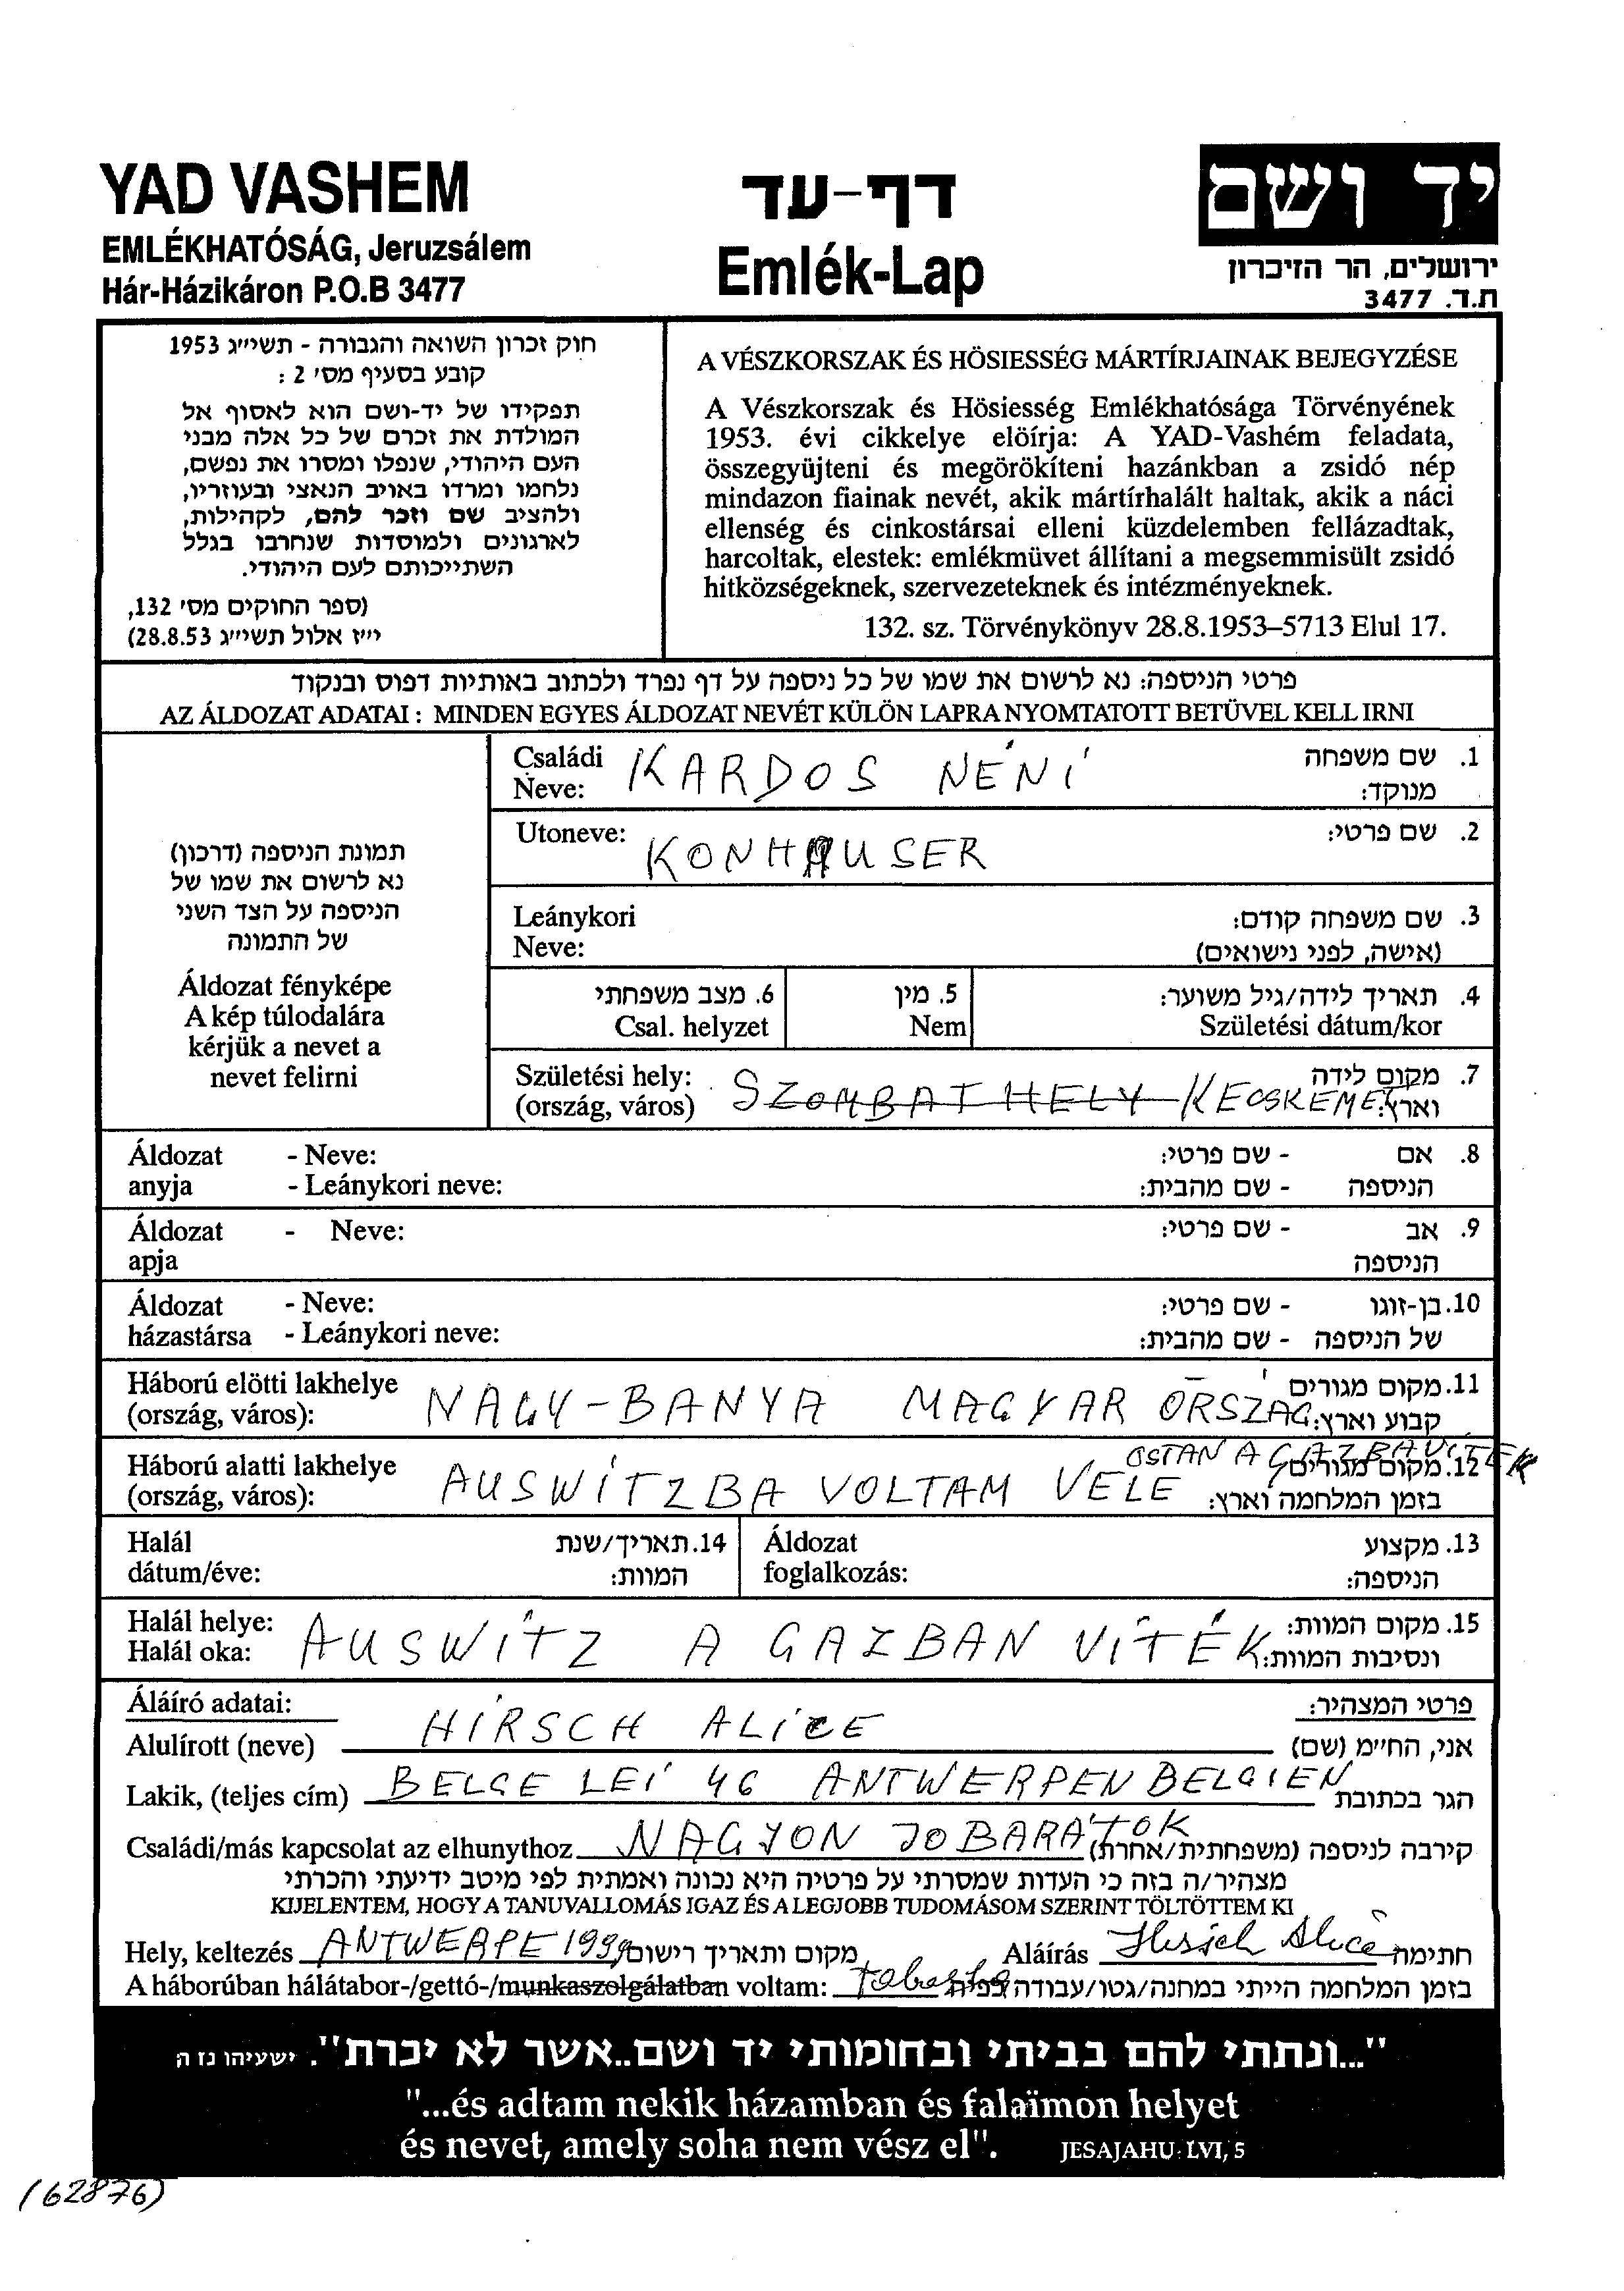 YAD VASHEM
EMLÉKHATÓSÁG, Jeruzsálem
Hár-Házikáron P.O.B 3477
דף-עד
Emlék-Lap
יד ושם
ירושלים, הר הזיכרון
ת.ד. 3477
חוק זכרון השואה והגבורה - תשי״ג 1953
קובע בסעיף מס׳ 2 :
תפקידו של יד-ושם הוא לאסוף אל
המולדת את זכרם של כל אלה מבני
העם היהודי, שנפלו ומסרו את נפשם,
נלחמו ומרדו באויב הנאצי ובעוזריו,
ולהציב שם וזכר להם, לקהילות,
לארגונים ולמוסדות שנחרבו בגלל
השתייכותם לעם היהודי.
(ספר החוקים מס׳ 132,
י״ז אלול תשי״ג 28.8.53)
A VÉSZKORSZAK ÉS HÖSIESSÉG MÁRTÍRJAINAK BEJEGYZÉSE
A Vészkorszak és Hösiesség Emlékhatósága Törvényének
1953. évi cikkelye elöírja: A YAD-Vashém feladata,
összegyüjteni és megörökíteni hazánkban a zsidó nép
mindazon fiainak nevét, akik mártírhalált haltak, akik a náci
ellenség és cinkostársai elleni küzdelemben fellázadtak,
harcoltak, elestek: emlékmüvet állítani a megsemmisült zsidó
hitközségeknek, szervezeteknek és intézményeknek.
132. sz. Törvénykönyv 28.8.1953–5713 Elul 17.
פרטי הניספה: נא לרשום את שמו של כל ניספה על דף נפרד ולכתוב באותיות דפוס ובנקוד
AZ ÁLDOZAT ADATAI : MINDEN EGYES ÁLDOZAT NEVÉT KÜLÖN LAPRA NYOMTATOTT BETÜVEL KELL IRNI
תמונת הניספה (דרכון)
נא לרשום את שמו של
הניספה על הצד השני
של התמונה
Áldozat fényképe
A kép túlodalára
kérjük a nevet a
nevet felirni
Családi KARDOS NÉNI 1. שם משפחה
Neve: מנוקד:
Utoneve: KONHAUSER 2. שם פרטי:
Leánykori 3. שם משפחה קודם:
Neve: (אישה, לפני נישואים)
6. מצב משפחתי 5. מין 4. תאריך לידה/גיל משוער:
Csal. helyzet Nem Születési dátum/kor
Születési hely: SZOMBATHELY KECSKEMET 7. מקום לידה
(ország, város) וארץ:
Áldozat - Neve: - שם פרטי: 8. אם
anyja - Leánykori neve: - שם מהבית: הניספה
Áldozat - Neve: - שם פרטי: 9. אב
apja הניספה
Áldozat - Neve: - שם פרטי: 10. בן-זוגו
házastársa - Leánykori neve: - שם מהבית: של הניספה
Háború elötti lakhelye NAGY-BANYA MAGYAR ORSZÁG 11. מקום מגורים
(ország, város): קבוע וארץ:
OSTAN A GAZBA VITEK
Háború alatti lakhelye AUSWITZBA VOLTAM VELE 12. מקום מגורים
(ország, város): בזמן המלחמה וארץ:
Halál 14. תאריך/שנת Áldozat 13. מקצוע
dátum/éve: המוות: foglalkozás: הניספה:
Halál helye: AUSWITZ A GAZBAN VITÉK 15. מקום המוות:
Halál oka: ונסיבות המוות:
Áláíró adatai: פרטי המצהיר:
Alulírott (neve) HIRSCH ALICE אני, החי״מ (שם)
Lakik, (teljes cím) BELGE LEI 46 ANTWERPEN BELGIEN הגר בכתובת
Családi/más kapcsolat az elhunythoz NAGYON JOBARÁTOK קירבה לניספה (משפחתית/אחרת)
מצהיר/ה בזה כי העדות שמסרתי על פרטיה היא נכונה ואמתית לפי מיטב ידיעתי והכרתי
KIJELENTEM, HOGY A TANUVALLOMÁS IGAZ ÉS A LEGJOBB TUDOMÁSOM SZERINT TÖLTÖTTEM KI
Hely, keltezés ANTWERPE 1999 מקום ותאריך רישום Aláírás Hirsch Alice חתימה
A háborúban hálátabor-/gettó-/munkaszolgálatban voltam: בזמן המלחמה הייתי במחנה/גטו/עבודה
"...ונתתי להם בביתי ובחומותי יד ושם..אשר לא יכרת". ישעיהו נז ה
"...és adtam nekik házamban és falaïmon helyet
és nevet, amely soha nem vész el". JESAJAHU: LVI, 5
(62876)